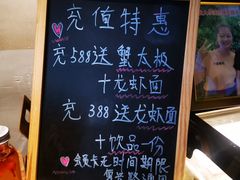 充值特惠
充588送蟹太极
十龙虾面
充388送龙虾面
十饮品一份
会员卡无时间期限